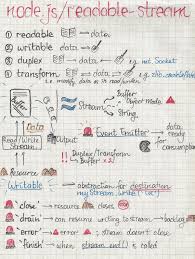 node.js/readable-stream
① readable → data.
② writable data →
③ duplex data → → data e.g. net.Socket
④ transform data → → data e.g. zlib.
Buffer
Stream
Object mode
Buffer
Data
Event Emitter
data ready for consumption
Read/Write Stream
Output
!! Duplex/Transform → Buffer x2
Resource
Resource
Writable → abstraction for destination
my Stream.write('...')
'close' resource → closed
'drain' can resume writing to stream → backlog
'error' error → stream doesn't close
'finish' when stream.end() is called